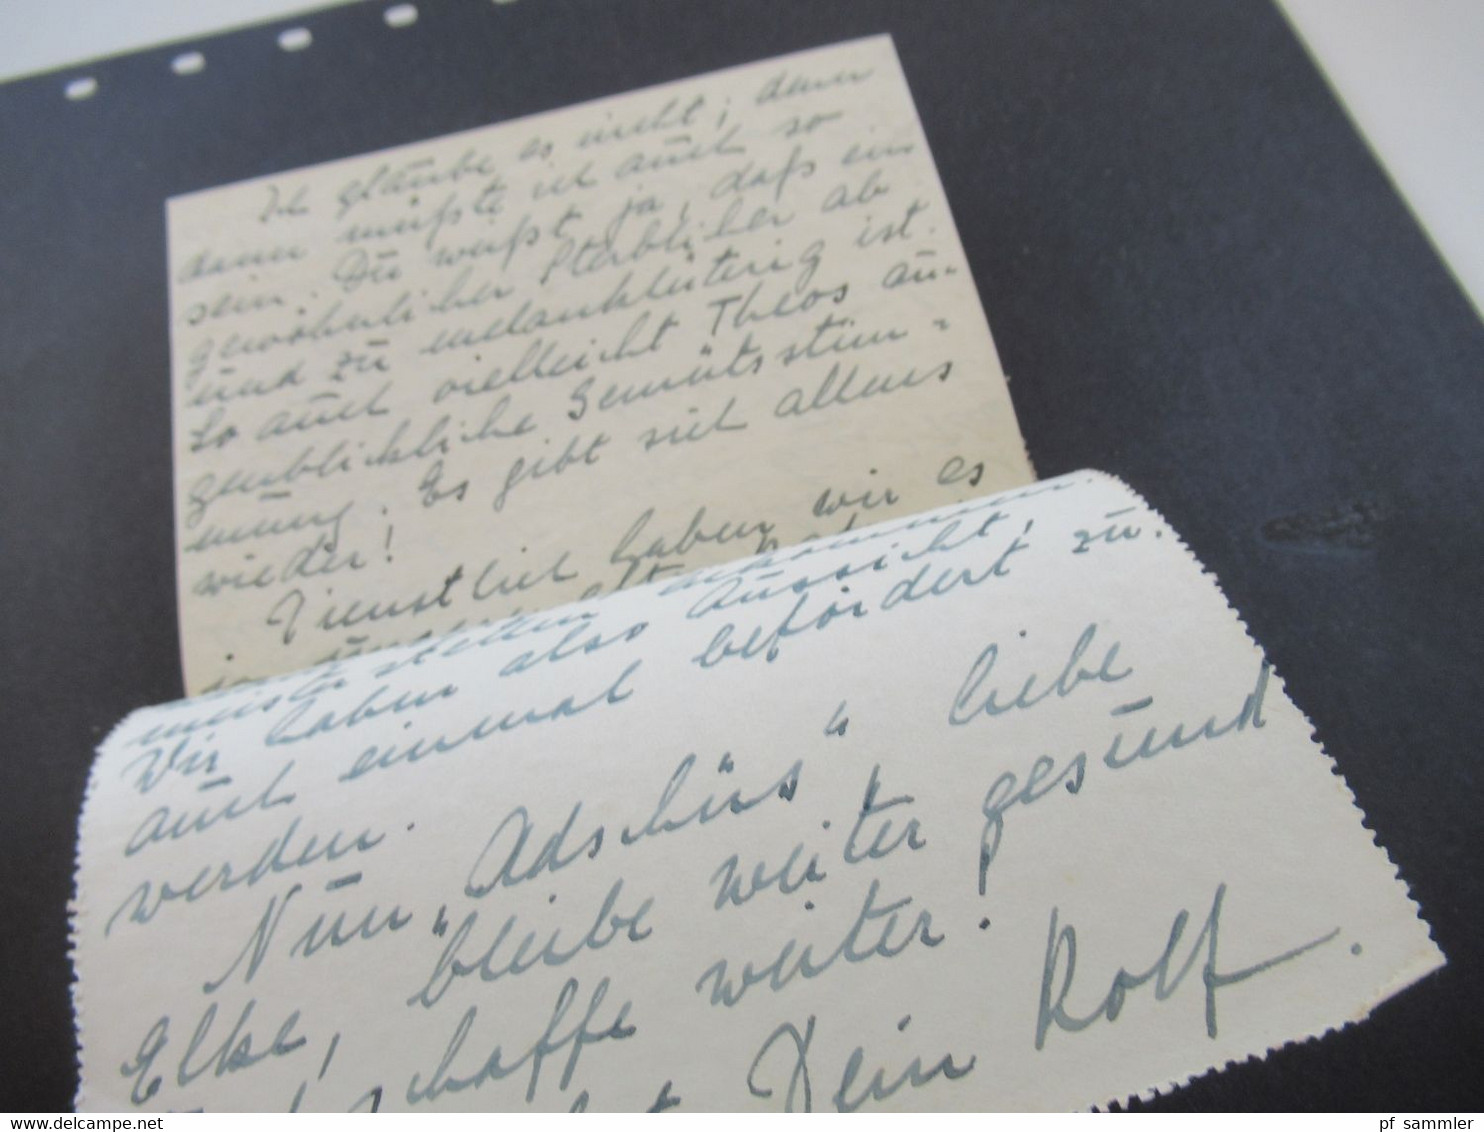 Ich glaube es nicht, denn
dann müßte ich auch so
sein. Du weißt ja, daß ein
gewöhnlicher Sterblicher ab
und zu melankleuterig ist.
So auch vielleicht Theos au-
genblickliche Gemütsstim-
mung. Es gibt sich allens
wieder!
Dienstlich haben wir es
Wir haben also Aussicht,
auch einmal befördert zu
werden.
Nun „Adschüs“ liebe
Elke, bleibe weiter gesund
schaffe weiter!
Dein Rolf.
pf_sammler